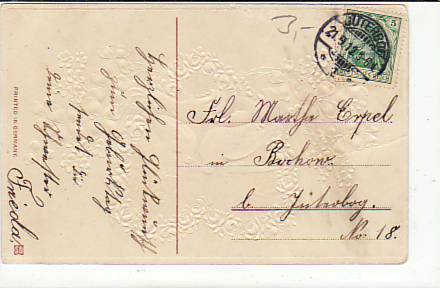 3-
JÜTERBOG
21.9.12
5
Herzlichen Glückwunsch
zum Geburtstag
sendet Dir
Deine Schwester
Frieda.
PRINTED IN GERMANY
Frl. Martha Erpel.
in Bochow.
b. Jüterbog.
No. 18.